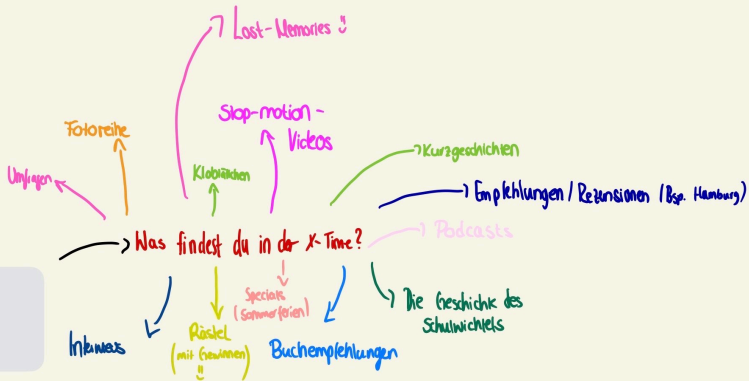 Lost-Memories
Stop-motion-
Videos
Fotoreihe
Kurzgeschichten
Umfragen
Kloblättchen
Empfehlungen / Rezensionen (Bsp. Hamburg)
Podcasts
Was findest du in der X-Time?
Specials
(Sommerferien)
Die Geschichte des
Schulwichtels
Interviews
Rästel
(mit Gewinnen)
Buchempfehlungen